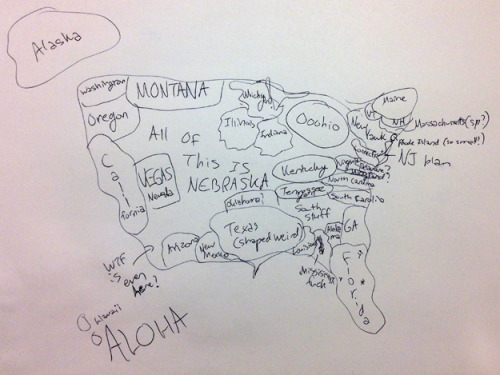 Alaska
Washington
MONTANA
Oregon
All OF
THIS IS
NEBRASKA
California
VEGAS
Nevada
Illinois
Indiana
Ooohio
Maine
VT
NH
Massachusetts (sp?)
New York
Rhode Island (so small!)
NJ blah
Kentucky
North Carolina
Tennessee
South Carolina
Oklahoma?
South
Stuff
Texas
(shaped weird)
GA
Arizona
New
Mexico
Florida
WTF
is
even
here?
Hawaii
ALOHA